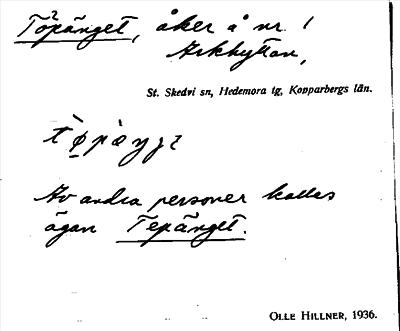 Töpänget, åker å nr. 1
Arkhyttan,
St. Skedvi sn, Hedemora tg, Kopparbergs län.
Av andra personer kallas
ägan Tepänget.
OLLE HILLNER, 1936.